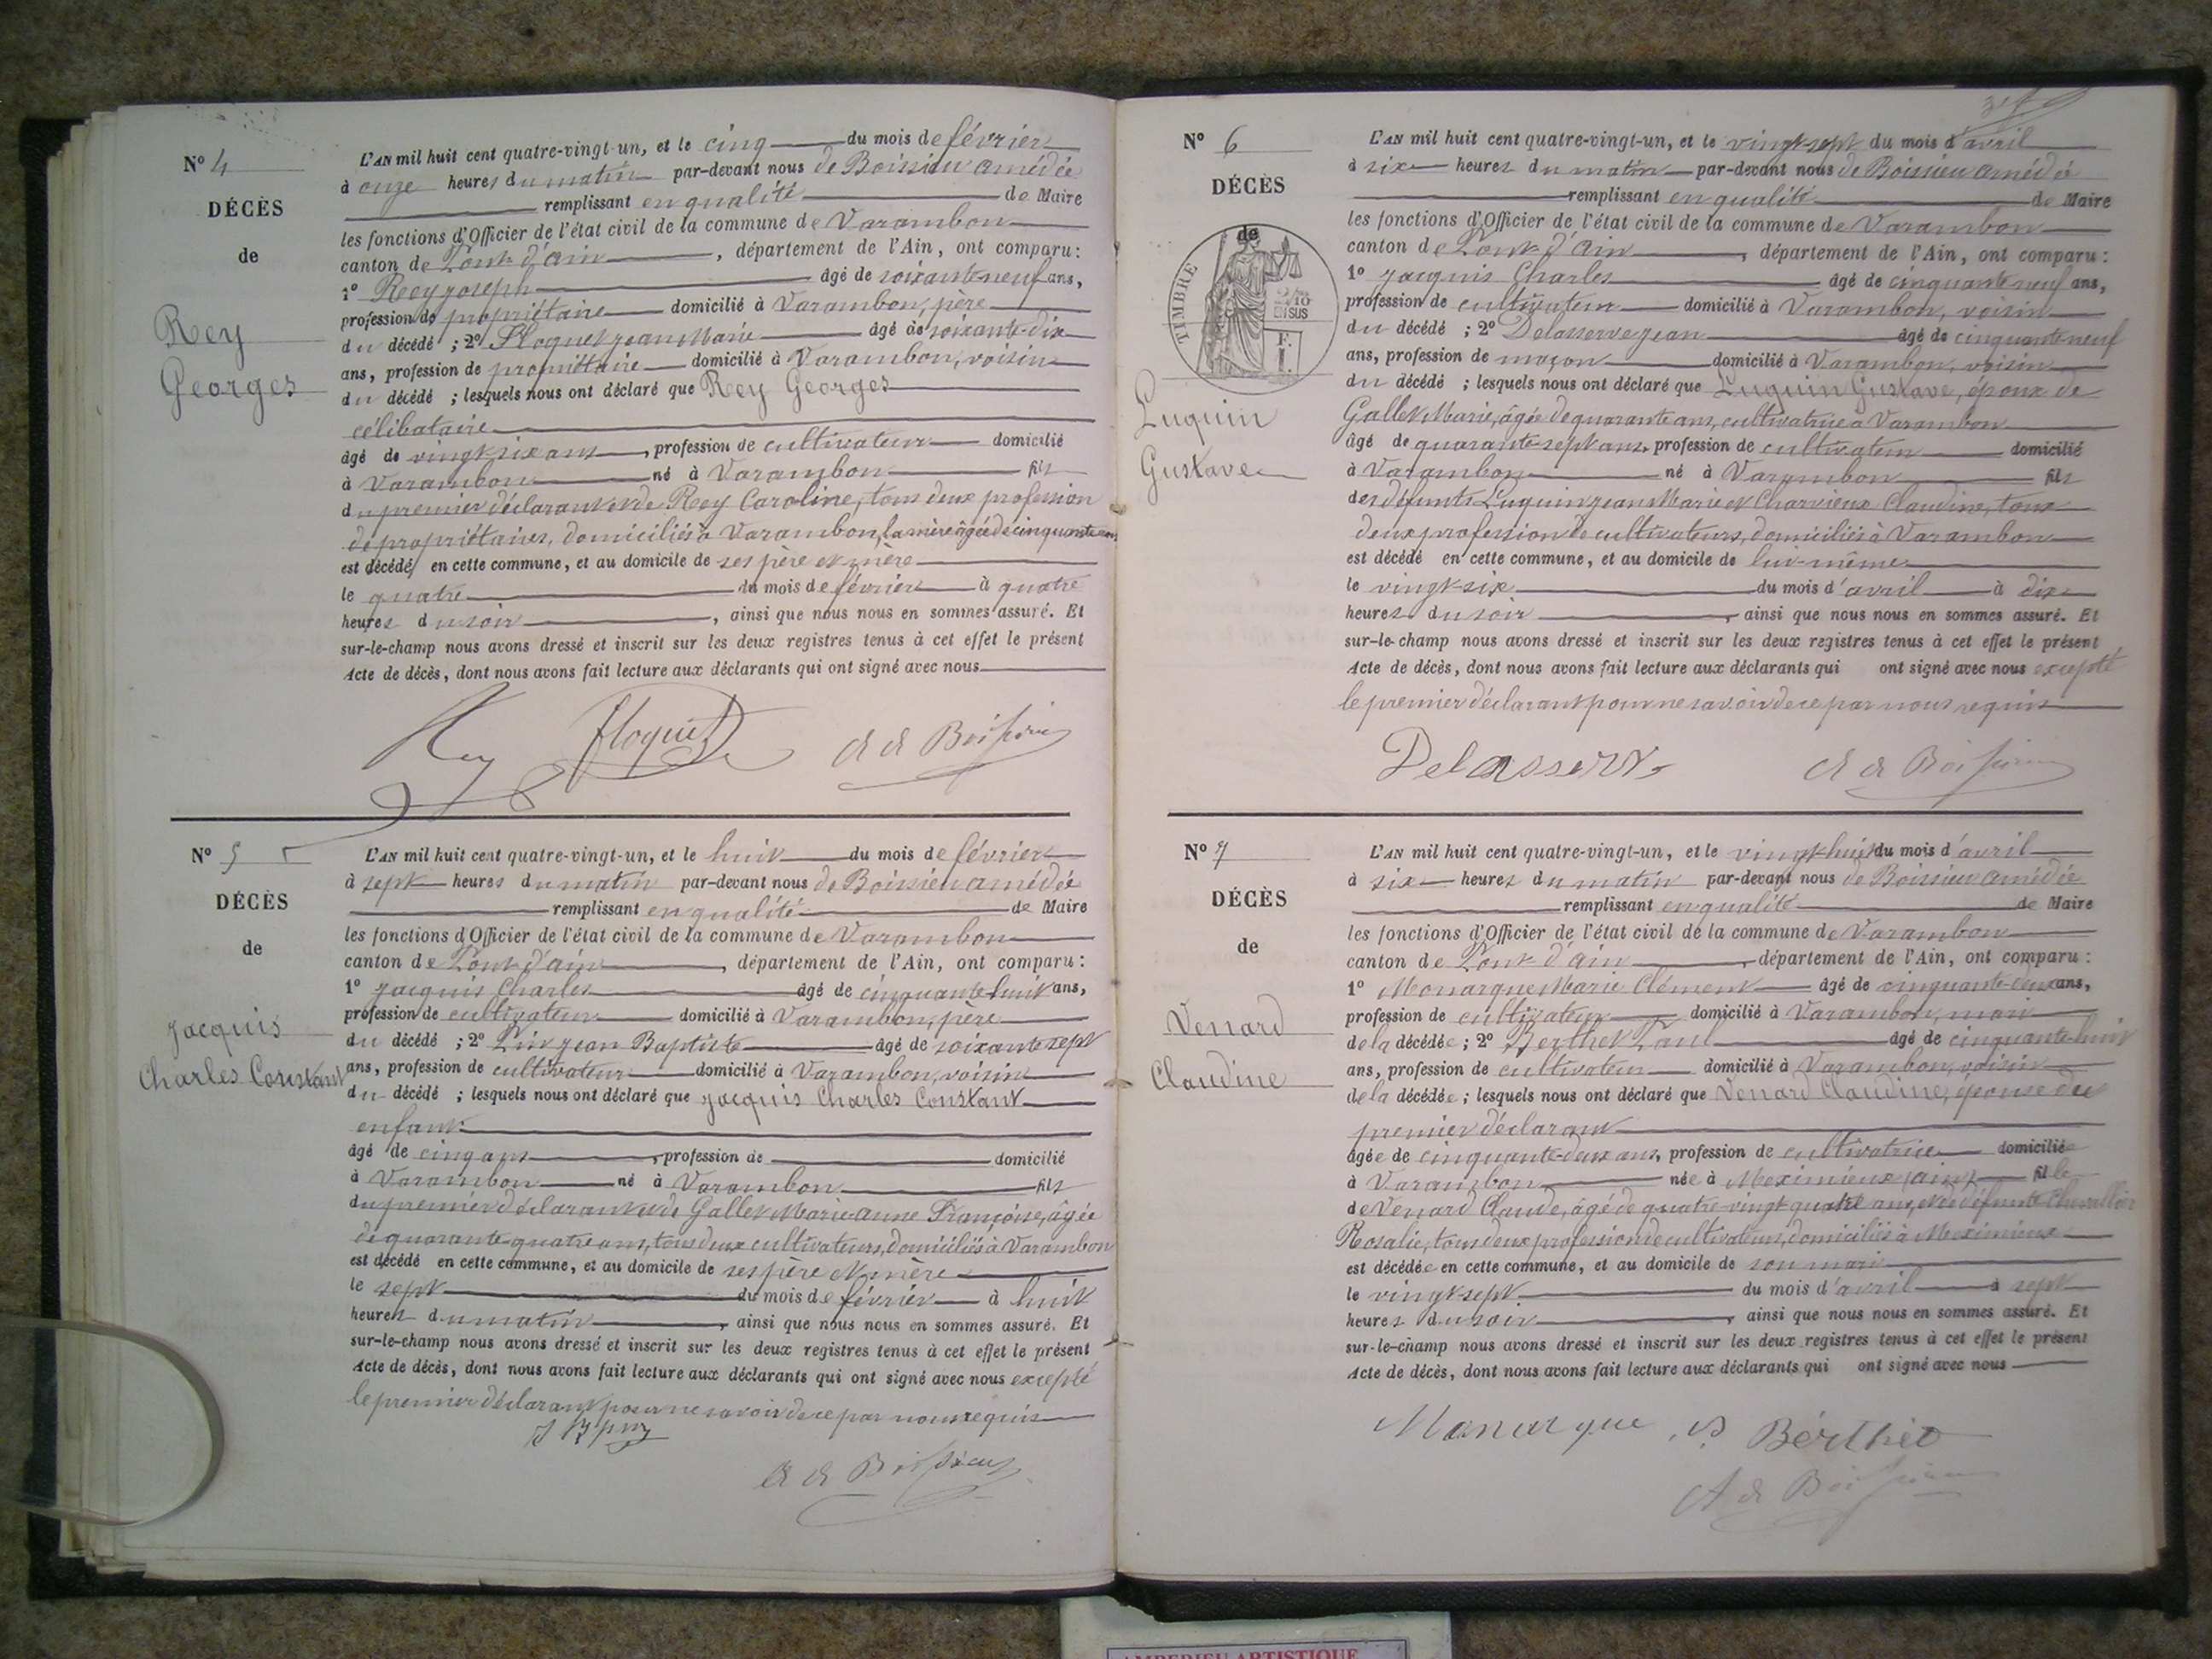 N° 4
DÉCÈS
de
Rey
Georges
L'AN mil huit cent quatre-vingt-un, et le cinq du mois de février
à onze heures du matin par-devant nous de Boissieu Amédée
remplissant en qualité de Maire
les fonctions d'Officier de l'état civil de la commune de Varambon
canton de Pont-d'Ain, département de l'Ain, ont comparu :
1° Rey Joseph âgé de soixante-neuf ans,
profession de propriétaire domicilié à Varambon, père
du décédé ; 2° Floquet Jean Marie âgé de soixante-dix
ans, profession de propriétaire domicilié à Varambon, voisin
du décédé ; lesquels nous ont déclaré que Rey Georges
célibataire
âgé de vingt-six ans, profession de cultivateur domicilié
à Varambon né à Varambon fils
du premier déclarant et de Rey Caroline, tous deux profession
de propriétaires, domiciliés à Varambon, la mère âgée de cinquante ans
est décédé en cette commune, et au domicile de ses père et mère
le quatre du mois de février à quatre
heures du soir, ainsi que nous nous en sommes assuré. Et
sur-le-champ nous avons dressé et inscrit sur les deux registres tenus à cet effet le présent
Acte de décès, dont nous avons fait lecture aux déclarants qui ont signé avec nous
Rey Floquet A de Boissieu
N° 5
DÉCÈS
de
Jacquis
Charles Constant
L'AN mil huit cent quatre-vingt-un, et le huit du mois de février
à sept heures du matin par-devant nous de Boissieu Amédée
remplissant en qualité de Maire
les fonctions d'Officier de l'état civil de la commune de Varambon
canton de Pont-d'Ain, département de l'Ain, ont comparu :
1° Jacquis Charles âgé de cinquante-huit ans,
profession de cultivateur domicilié à Varambon, père
du décédé ; 2° Pin Jean Baptiste âgé de soixante sept
ans, profession de cultivateur domicilié à Varambon, voisin
du décédé ; lesquels nous ont déclaré que Jacquis Charles Constant
enfant
âgé de cinq ans, profession de domicilié
à Varambon né à Varambon fils
du premier déclarant et de Gallet Marie Anne Françoise, âgée
de quarante quatre ans, tous deux cultivateurs, domiciliés à Varambon
est décédé en cette commune, et au domicile de ses père et mère
le sept du mois de février à huit
heures du matin, ainsi que nous nous en sommes assuré. Et
sur-le-champ nous avons dressé et inscrit sur les deux registres tenus à cet effet le présent
Acte de décès, dont nous avons fait lecture aux déclarants qui ont signé avec nous excepté
le premier déclarant pour ne savoir de ce par nous requis
A de Boissieu
N° 6
DÉCÈS
de
TIMBRE
2/10
EN SUS
Luquin
Gustave
L'AN mil huit cent quatre-vingt-un, et le vingt-sept du mois d'avril
à six heures du matin par-devant nous de Boissieu Amédée
remplissant en qualité de Maire
les fonctions d'Officier de l'état civil de la commune de Varambon
canton de Pont-d'Ain, département de l'Ain, ont comparu :
1° Jacquis Charles âgé de cinquante neuf ans,
profession de cultivateur domicilié à Varambon, voisin
du décédé ; 2° Delasserve Jean âgé de cinquante-neuf
ans, profession de maçon domicilié à Varambon, voisin
du décédé ; lesquels nous ont déclaré que Luquin Gustave, époux de
Gallet Marie, âgée de quarante ans, cultivatrice à Varambon
âgé de quarante-sept ans, profession de cultivateur domicilié
à Varambon né à Varambon fils
des défunts Luquin Jean Marie et Charvieux Claudine, tous
deux profession de cultivateurs, domiciliés à Varambon
est décédé en cette commune, et au domicile de lui-même
le vingt-six du mois d'avril à dix
heures du soir, ainsi que nous nous en sommes assuré. Et
sur-le-champ nous avons dressé et inscrit sur les deux registres tenus à cet effet le présent
Acte de décès, dont nous avons fait lecture aux déclarants qui ont signé avec nous excepté
le premier déclarant pour ne savoir de ce par nous requis
Delasserve A de Boissieu
N° 7
DÉCÈS
de
Venard
Claudine
L'AN mil huit cent quatre-vingt-un, et le vingt-huit du mois d'avril
à six heures du matin par-devant nous de Boissieu Amédée
remplissant en qualité de Maire
les fonctions d'Officier de l'état civil de la commune de Varambon
canton de Pont-d'Ain, département de l'Ain, ont comparu :
1° Monarque Marie Clément âgé de cinquante-deux ans,
profession de cultivateur domicilié à Varambon, mari
de la décédée ; 2° Berthet Paul âgé de cinquante-huit
ans, profession de cultivateur domicilié à Varambon, voisin
de la décédée ; lesquels nous ont déclaré que Venard Claudine, épouse du
premier déclarant
âgée de cinquante-deux ans, profession de cultivatrice domiciliée
à Varambon née à Meximieux (Ain) fille
de Venard Claude, âgé de quatre-vingt-quatre ans, et de défunte
Rosalie, tous deux profession de cultivateurs, domiciliés à Meximieux
est décédée en cette commune, et au domicile de son mari
le vingt-sept du mois d'avril à sept
heures du soir, ainsi que nous nous en sommes assuré. Et
sur-le-champ nous avons dressé et inscrit sur les deux registres tenus à cet effet le présent
Acte de décès, dont nous avons fait lecture aux déclarants qui ont signé avec nous
Monarque Berthet
A de Boissieu
AMBERIEU ARTISTIQUE